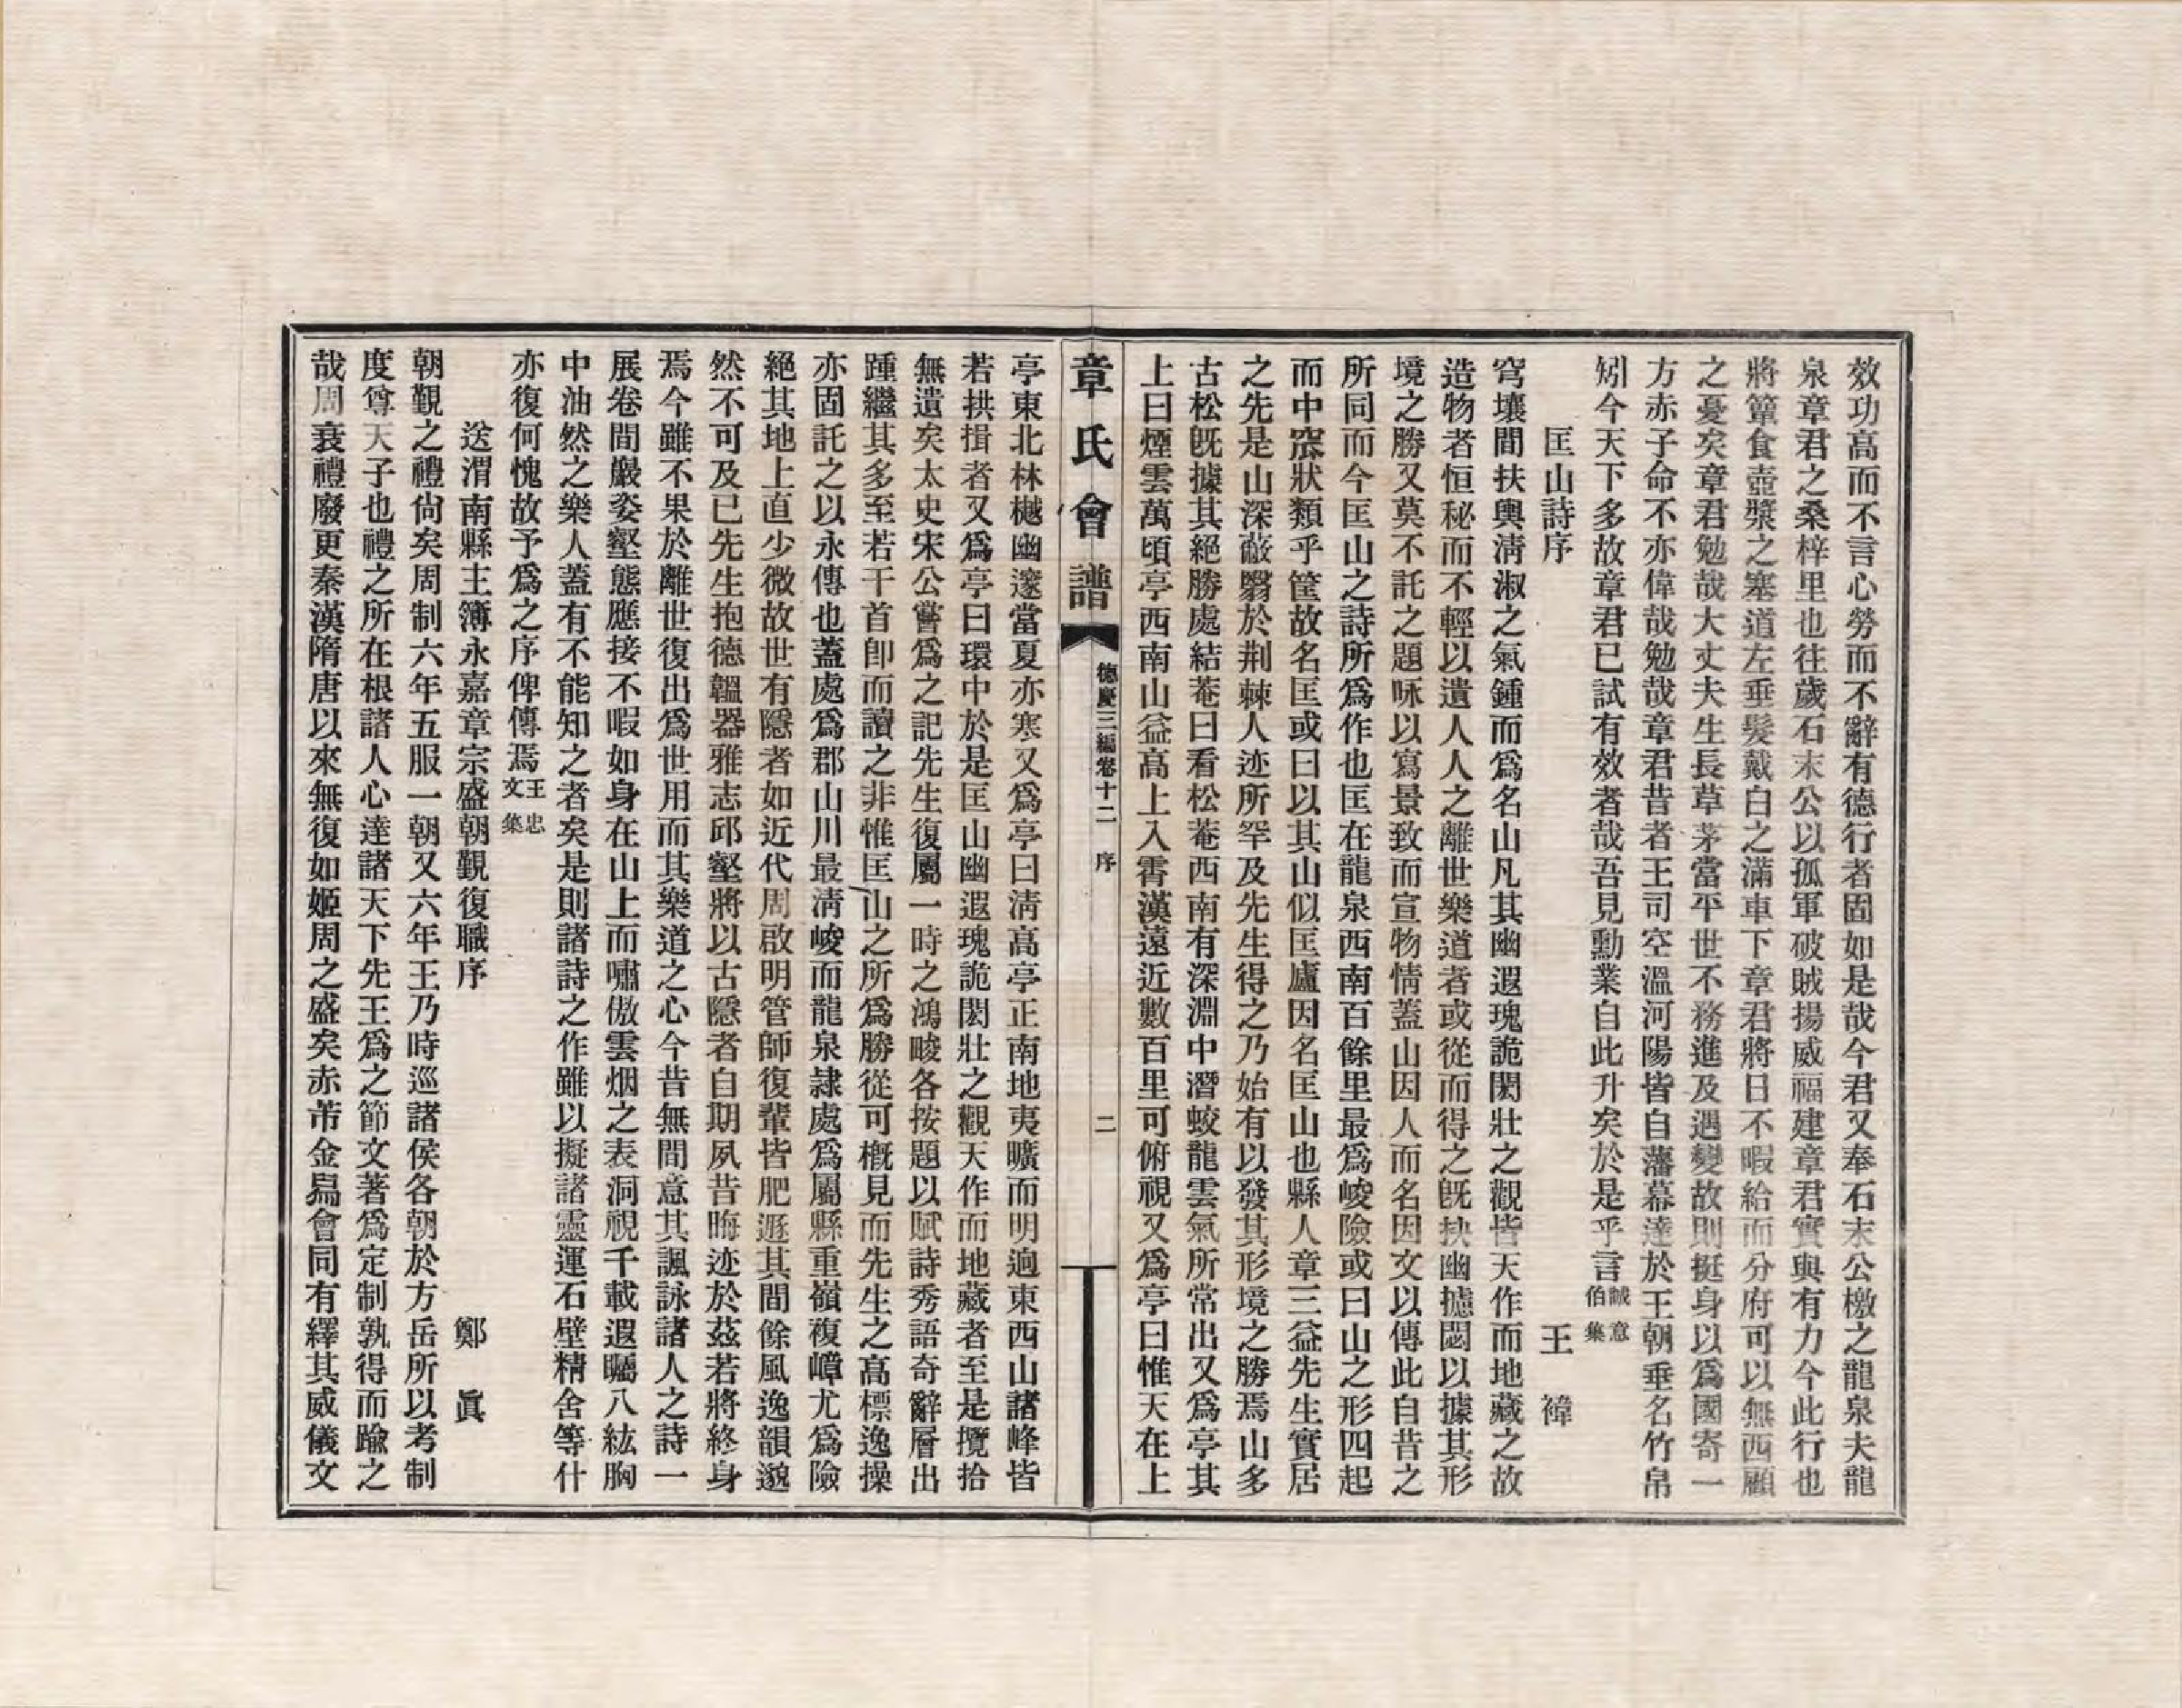 效功高而不言心勞而不辭有德行者固如是哉今君又奉石末公檄之龍泉夫龍
泉章君之桑梓里也往歲石末公以孤軍破賊揚威福建章君實與有力今此行也
將簞食壺漿之塞道左垂髮戴白之滿車下章君將日不暇給而分府可以無西顧
之憂矣章君勉哉大丈夫生長草茅當平世不務進及遇變故則挺身以爲國寄一
方赤子命不亦偉哉勉哉章君昔者王司空溫河陽皆自藩幕達於王朝垂名竹帛
矧今天下多故章君已試有效者哉吾見勳業自此升矣於是乎言誠意伯集
匡山詩序 王褘
穹壤間扶輿淸淑之氣鍾而爲名山凡其幽遐瑰詭閎壯之觀皆天作而地藏之故
造物者恒秘而不輕以遺人人之離世樂道者或從而得之旣抉幽攄閟以據其形
境之勝又莫不託之題咏以寫景致而宣物情蓋山因人而名因文以傳此自昔之
所同而今匡山之詩所爲作也匡在龍泉西南百餘里最爲峻險或曰山之形四起
而中窊狀類乎筐故名匡或曰以其山似匡廬因名匡山也縣人章三益先生實居
之先是山深蔽翳於荆棘人迹所罕及先生得之乃始有以發其形境之勝焉山多
古松旣據其絕勝處結菴曰看松菴西南有深淵中潛蛟龍雲氣所常出又爲亭其
上曰煙雲萬頃亭西南山益高上入霄漢遠近數百里可俯視又爲亭曰惟天在上
章氏會譜 德慶三編卷十二 序 二
亭東北林樾幽邃當夏亦寒又爲亭曰淸高亭正南地夷曠而明逈東西山諸峰皆
若拱揖者又爲亭曰環中於是匡山幽遐瑰詭閎壯之觀天作而地藏者至是攬拾
無遺矣太史宋公嘗爲之記先生復屬一時之鴻畯各按題以賦詩秀語奇辭層出
踵繼其多至若干首卽而讀之非惟匡山之所爲勝從可概見而先生之高標逸操
亦固託之以永傳也蓋處爲郡山川最淸峻而龍泉隷處爲屬縣重嶺複嶂尤爲險
絕其地上直少微故世有隱者如近代周啟明管師復輩皆肥遯其間餘風逸韻邈
然不可及已先生抱德韞器雅志邱壑將以古隱者自期夙昔晦迹於茲若將終身
焉今雖不果於離世復出爲世用而其樂道之心今昔無間意其諷詠諸人之詩一
展卷間巖姿壑態應接不暇如身在山上而嘯傲雲烟之表洞視千載遐矚八紘胸
中油然之樂人蓋有不能知之者矣是則諸詩之作雖以擬諸靈運石壁精舍等什
亦復何愧故予爲之序俾傳焉王忠文集
送渭南縣主簿永嘉章宗盛朝覲復職序 鄭眞
朝覲之禮尙矣周制六年五服一朝又六年王乃時巡諸侯各朝於方岳所以考制
度尊天子也禮之所在根諸人心達諸天下先王爲之節文著爲定制孰得而踰之
哉周衰禮廢更秦漢隋唐以來無復如姬周之盛矣赤芾金舄會同有繹其威儀文